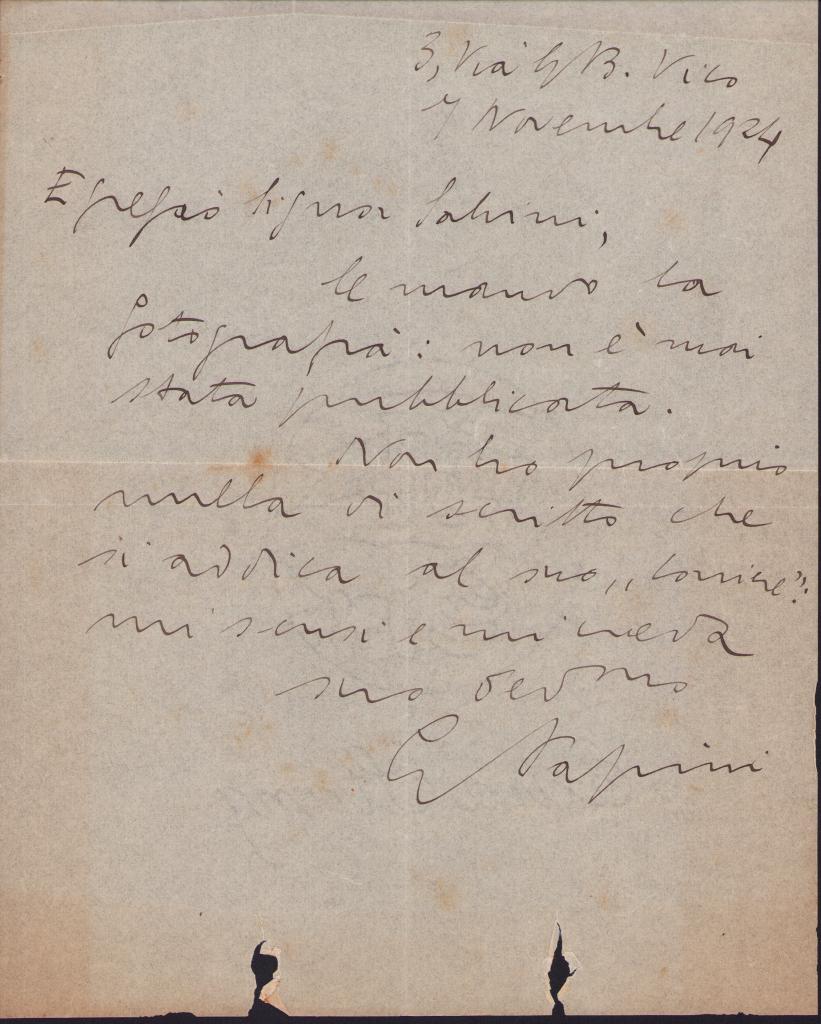 3, Via G B. Vico
7 Novembre 1924
Egregio Signor Sabini,
le mando la
fotografia: non è mai
stata pubblicata.
Non ho proprio
nulla di scritto che
si addica al suo „Corriere”:
mi scusi e mi creda
suo devmo
G Papini